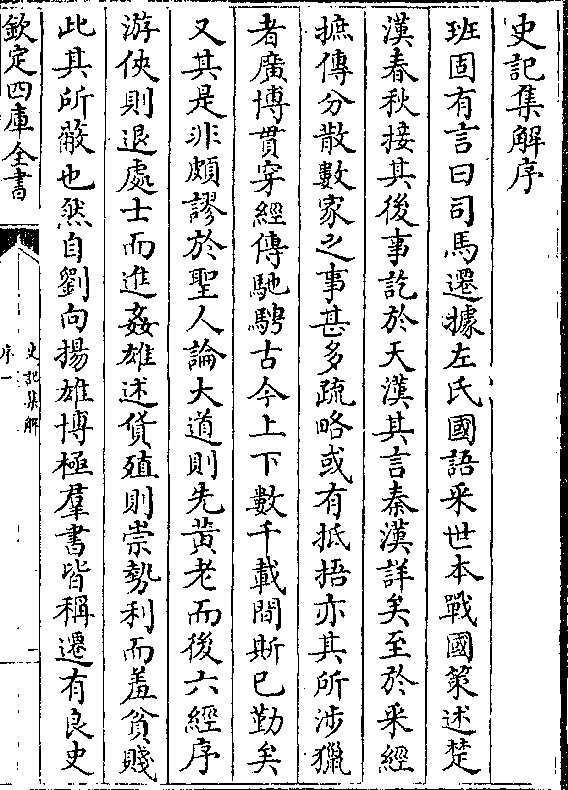 史記集解序
班固有言曰司馬遷據左氏國語采世本戰國策述楚
漢春秋接其後事訖於天漢其言秦漢詳矣至於采經
摭傳分散數家之事甚多疏略或有抵捂亦其所涉獵
者廣博貫穿經傳馳騁古今上下數千載間斯已勤矣
又其是非頗謬於聖人論大道則先黃老而後六經序
游俠則退處士而進姦雄述貨殖則崇勢利而羞貧賤
此其所敝也然自劉向揚雄博極羣書皆稱遷有良史
欽定四庫全書
史記集解
序一